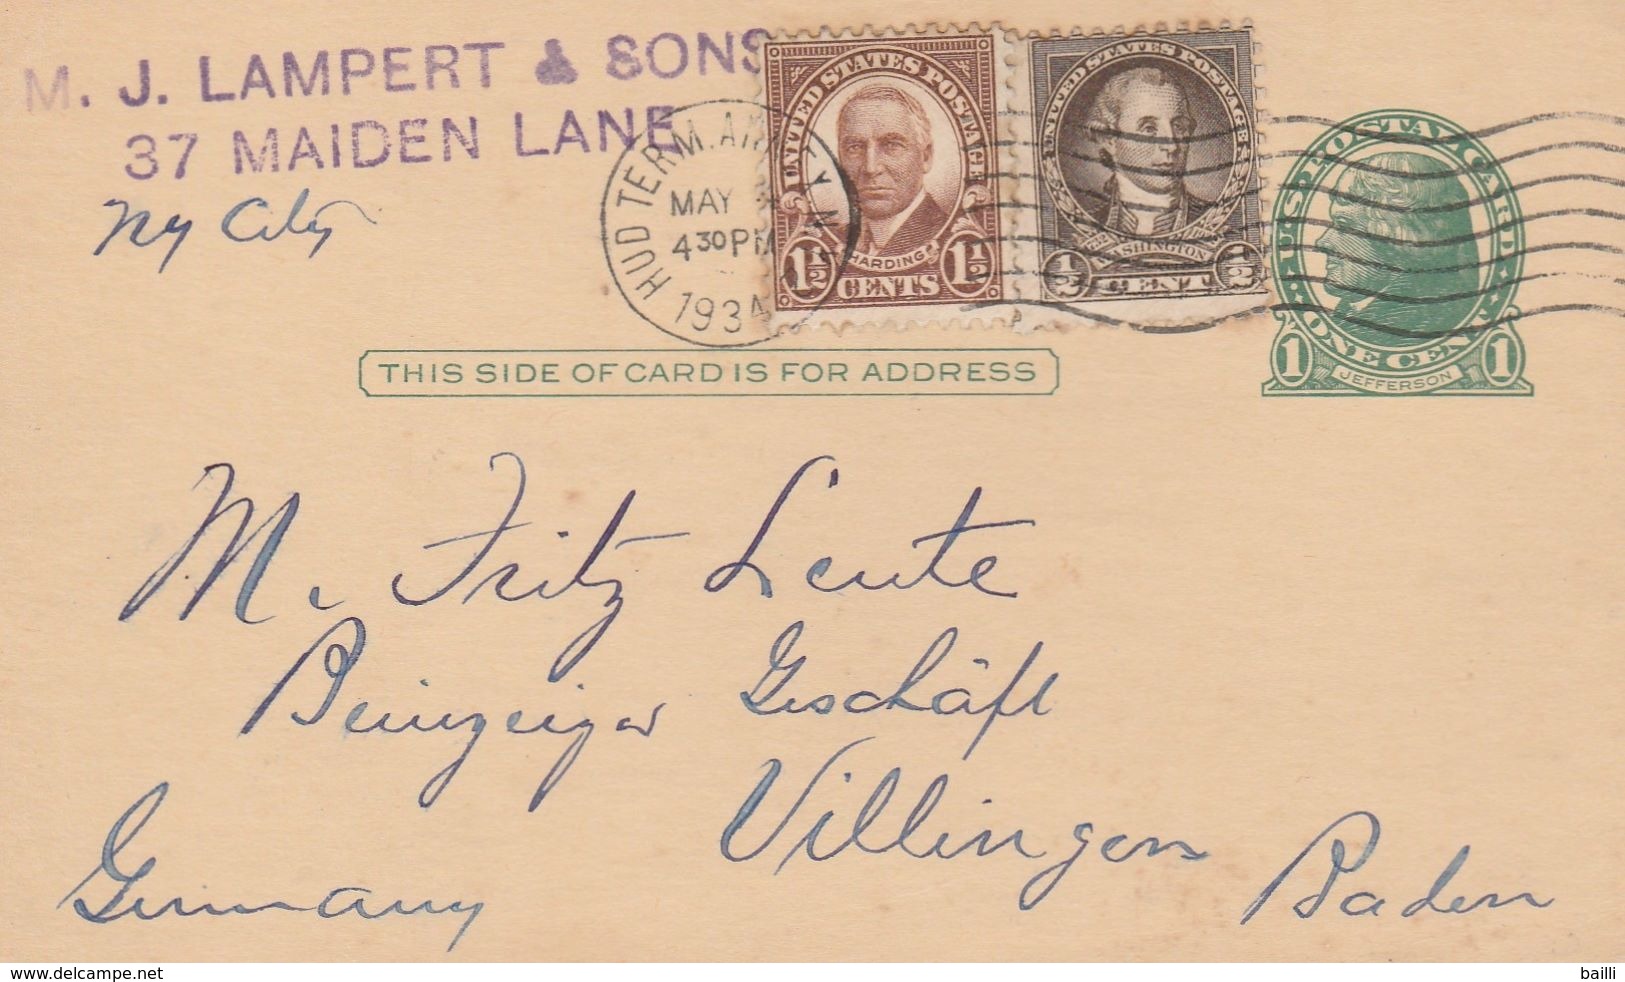 M. J. LAMPERT & SONS
37 MAIDEN LANE
NY City
HUD TERM. ANNEX N.Y.
MAY
4 30 PM
1934
UNITED STATES POSTAGE
HARDING
1 1/2 CENTS 1 1/2
UNITED STATES POSTAGE
WASHINGTON
1/2 CENT 1/2
U.S. POSTAL CARD
1 ONE CENT 1
JEFFERSON
THIS SIDE OF CARD IS FOR ADDRESS
M. Fritz Leute
Geschäft
Villingen
Baden
Germany
www.delcampe.net
bailli